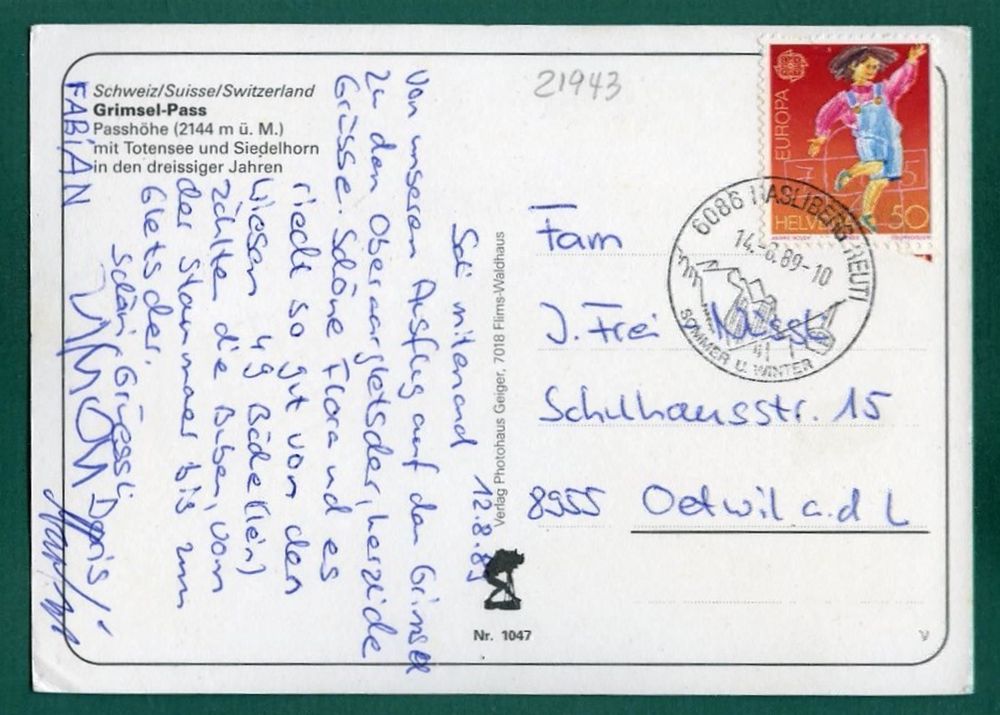 Schweiz/Suisse/Switzerland
Grimsel-Pass
Passhöhe (2144 m ü. M.)
mit Totensee und Siedelhorn
in den dreissiger Jahren
21943
EUROPA
HELVETIA 50
6086 HASLIBERG REUTI
14.-8.89-10
SOMMER U. WINTER
12.8.89
Sali mitenand
Von unseren Ausflug auf den Grimsel
zu den Oberaargletscher, herzliche
Grüsse. Schöne Flora und es
riecht so gut von den
Wiesen
die Buben, vom
der Stammer bis zum
Gletscher.
Grüessli Doris
FABIAN
SIMON
Verlag Photohaus Geiger, 7018 Flims-Waldhaus
Nr. 1047
Fam
J. Frei
Schulhausstr. 15
8955 Oetwil a.d L